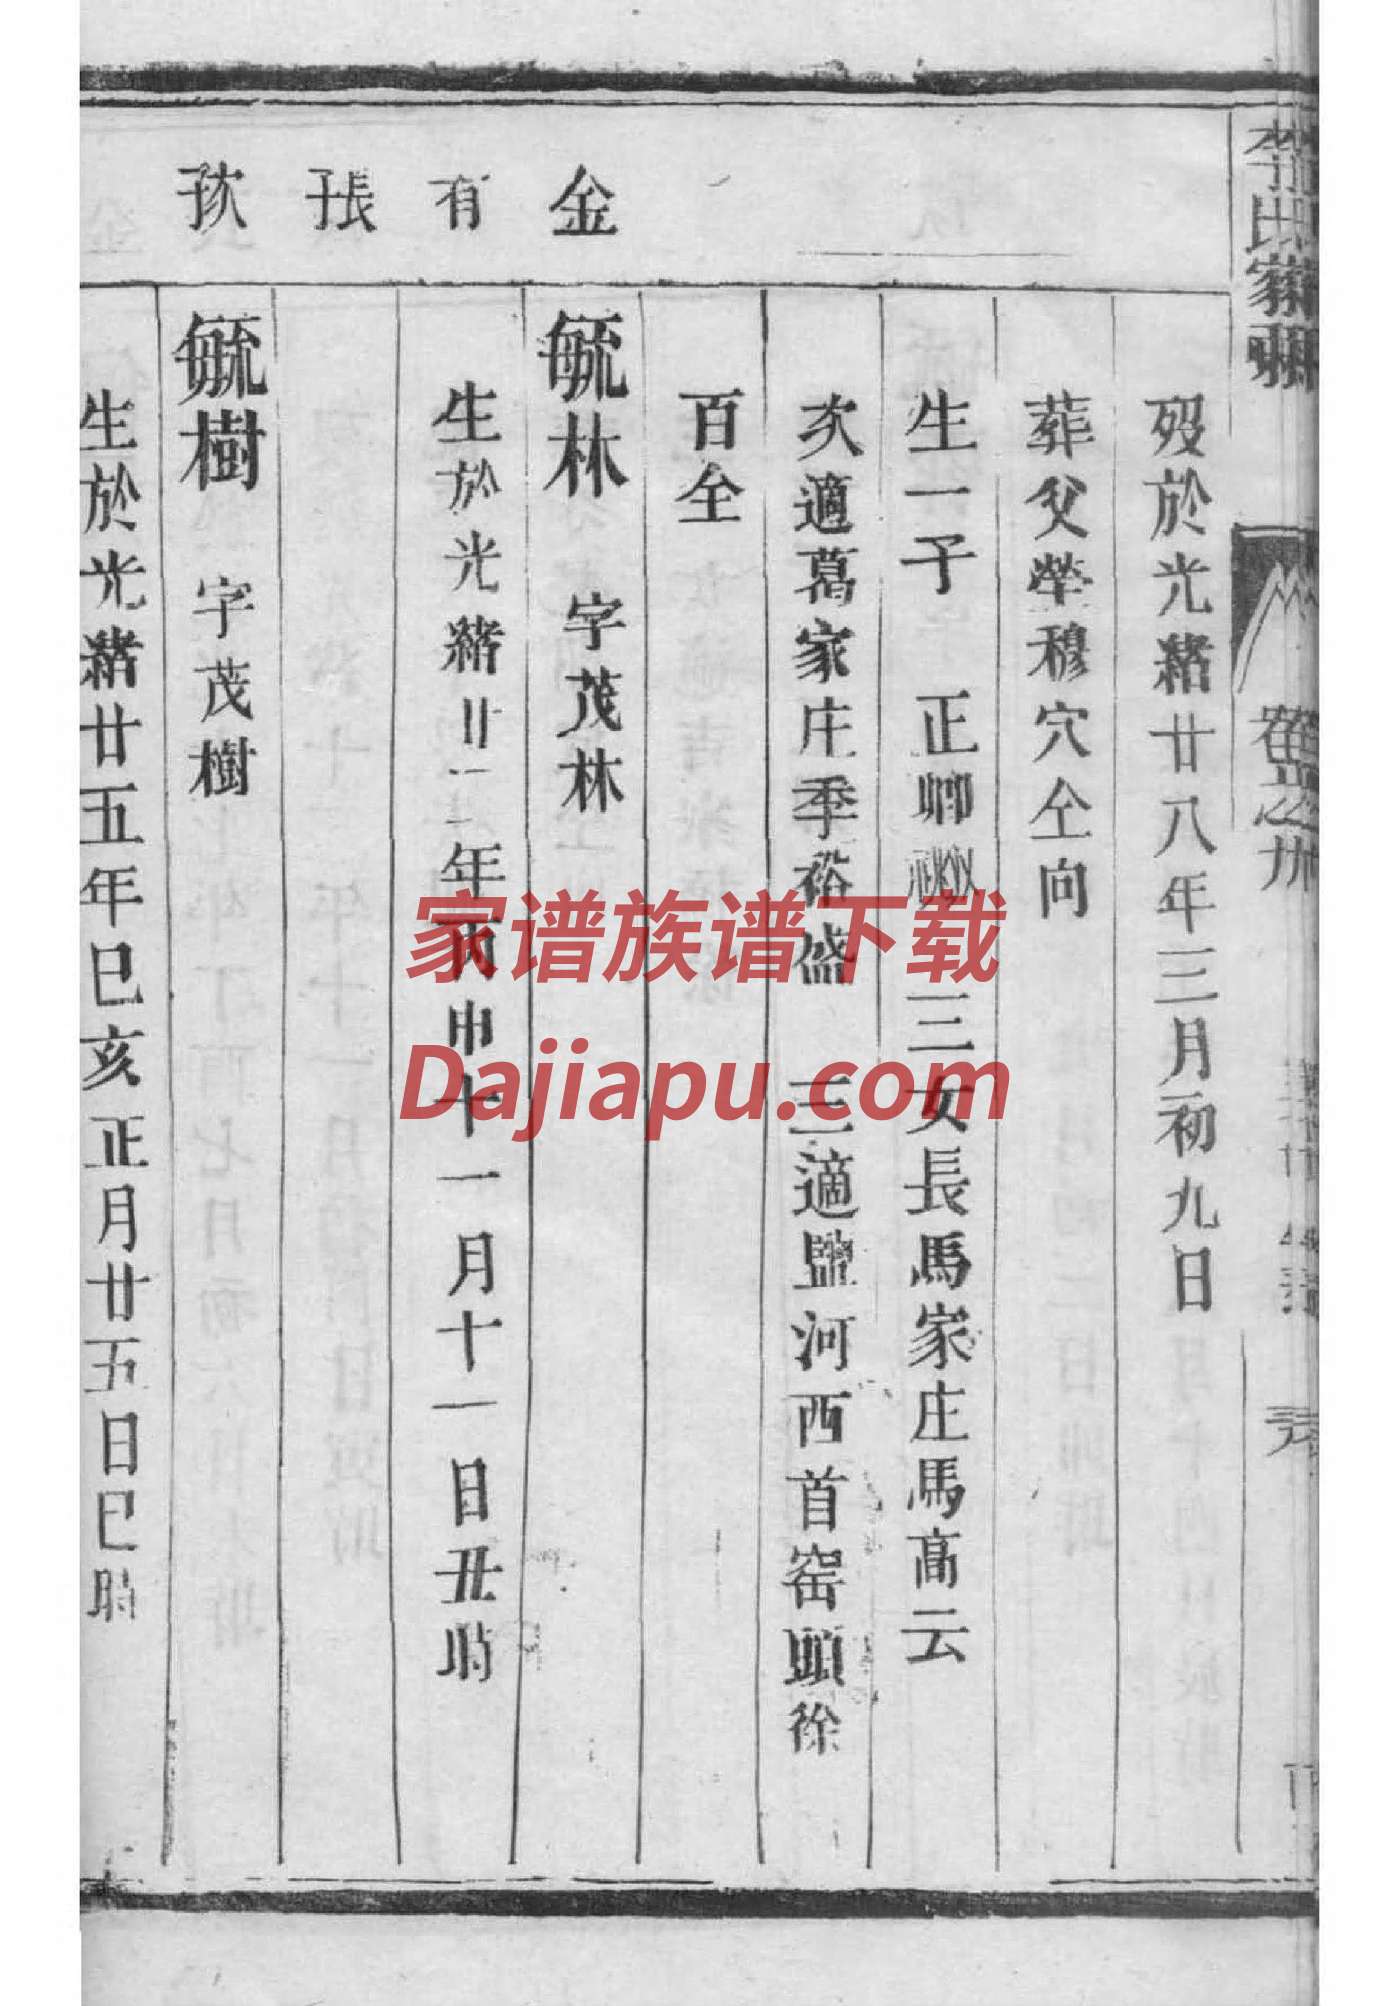 李氏家乘
卷之卅
歿於光緒廿八年三月初九日
葬父塋穆穴仝向
生一子 正卿 三女長馬家庄馬高云
次適葛家庄季裕盛 三適鹽河西首窑頭徐
百仝
金有長子
毓林 字茂林
生於光緒廿二年丙申十一月十一日丑時
次子
毓樹 字茂樹
生於光緒廿五年巳亥正月廿五日巳時
家谱族谱下载
Dajiapu.com